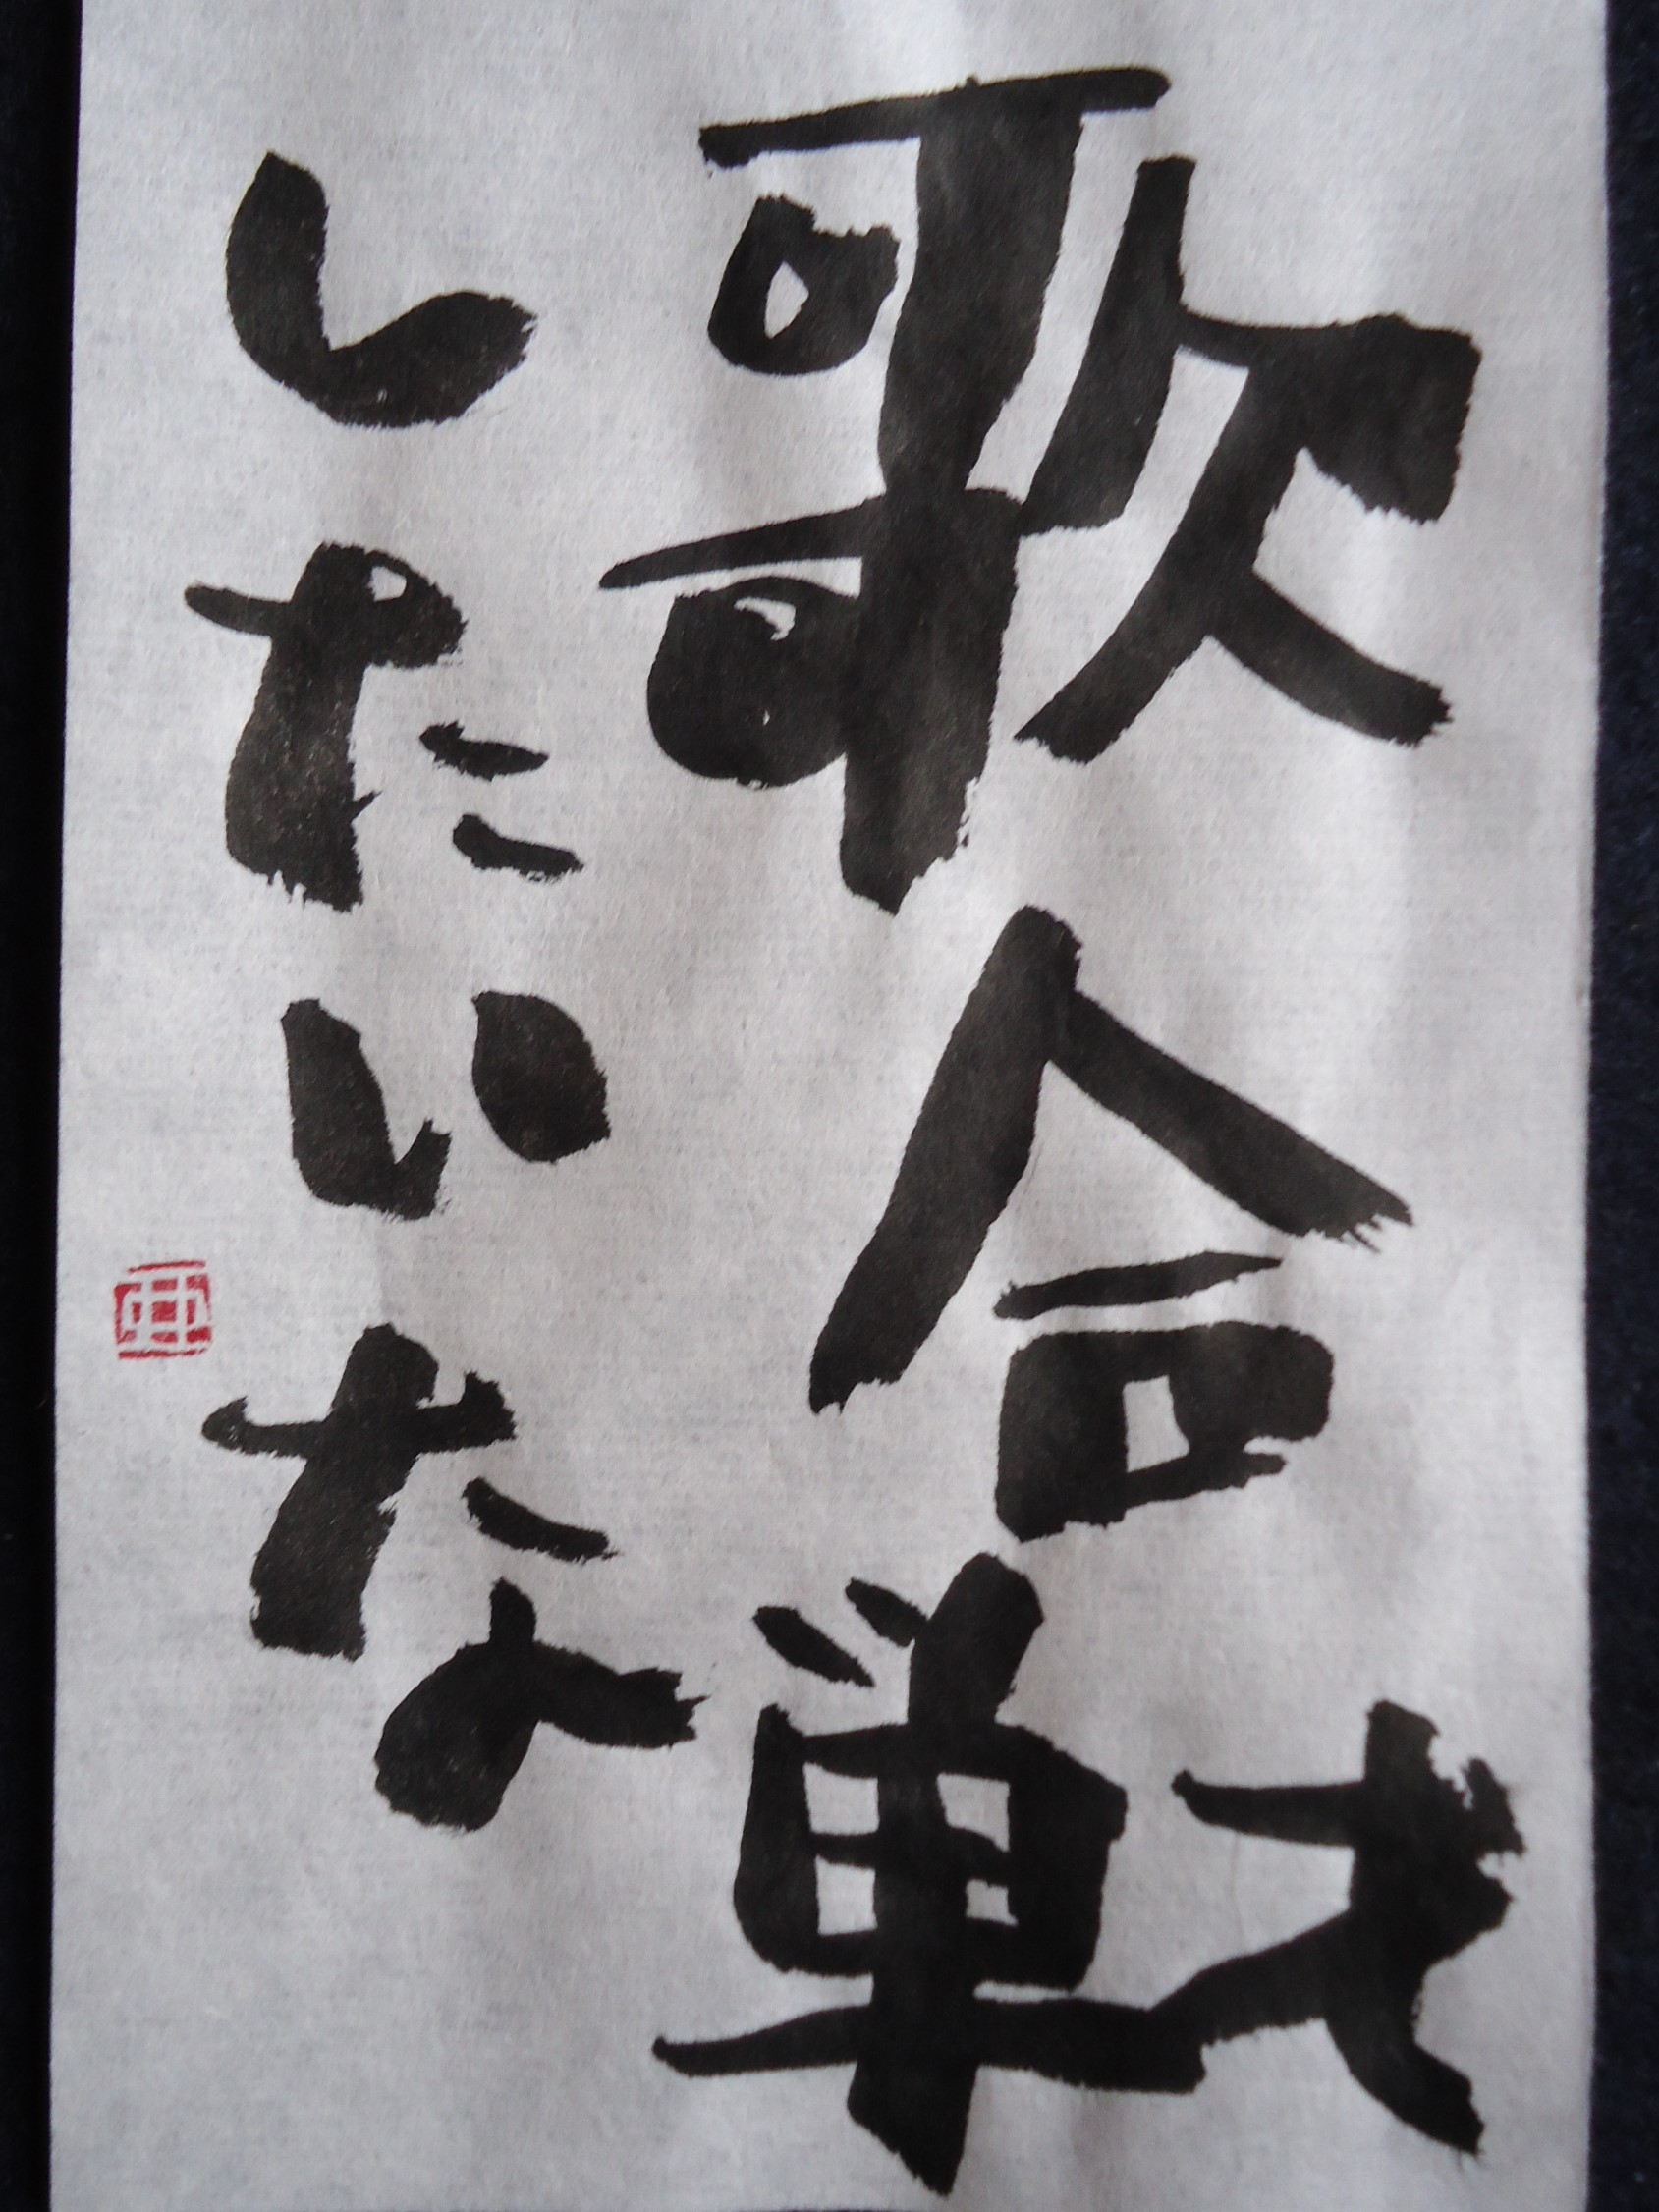 歌合戦
したいな